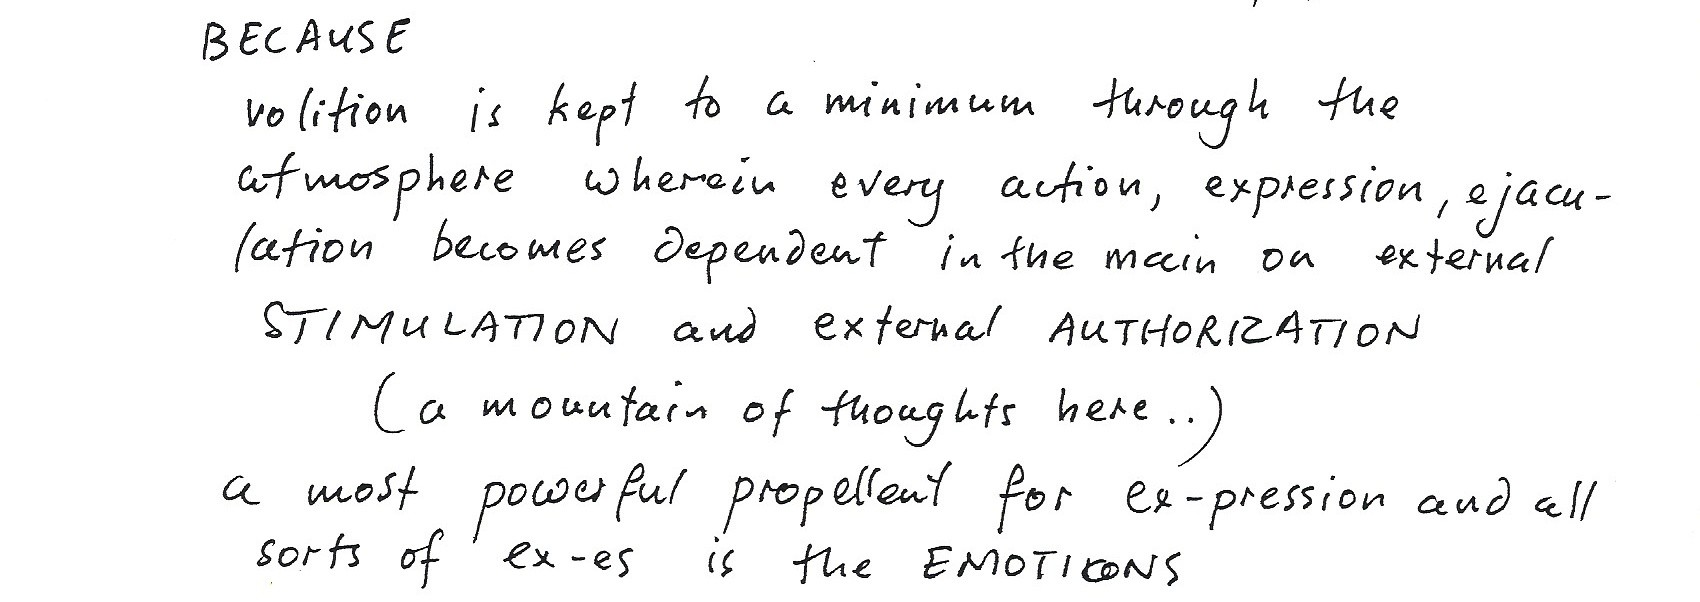 BECAUSE
volition is kept to a minimum through the
atmosphere wherein every action, expression, ejacu-
lation becomes dependent in the main on external
STIMULATION and external AUTHORIZATION
(a mountain of thoughts here..)
a most powerful propellent for ex-pression and all
sorts of ex-es is the EMOTIONS